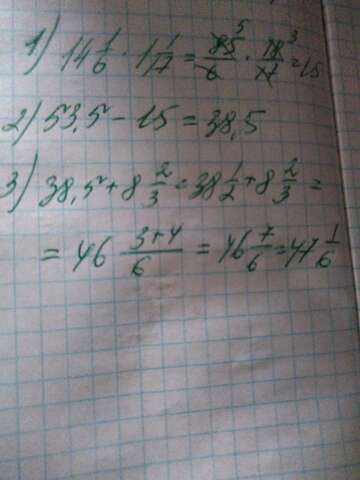 1) 14 1/6 · 1 1/17 = 85/6 5 · 18/17 3 = 15
2) 53,5 - 15 = 38,5
3) 38,5 + 8 2/3 = 38 1/2 + 8 2/3 =
= 46 3+4/6 = 46 7/6 = 47 1/6